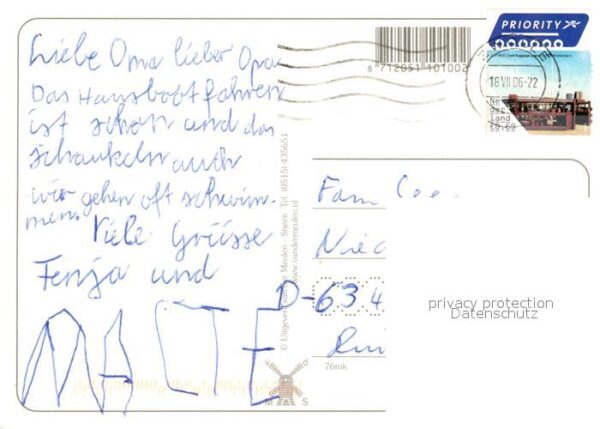 Liebe Oma lieber Opa
Das Hausbootfahren
ist schön und das
schaukeln auch
wir gehen oft schwim-
men.
Viele Grüsse
Fenja und
MALTE
8 712051 101002
PRIORITY
18 VII 06-22
Fam
D-63.4
76mk
M S
© Uitgeverij van der Meulen - Sneek Tel. (0515) 435651
www.vandermeulen.nl
privacy protection
Datenschutz